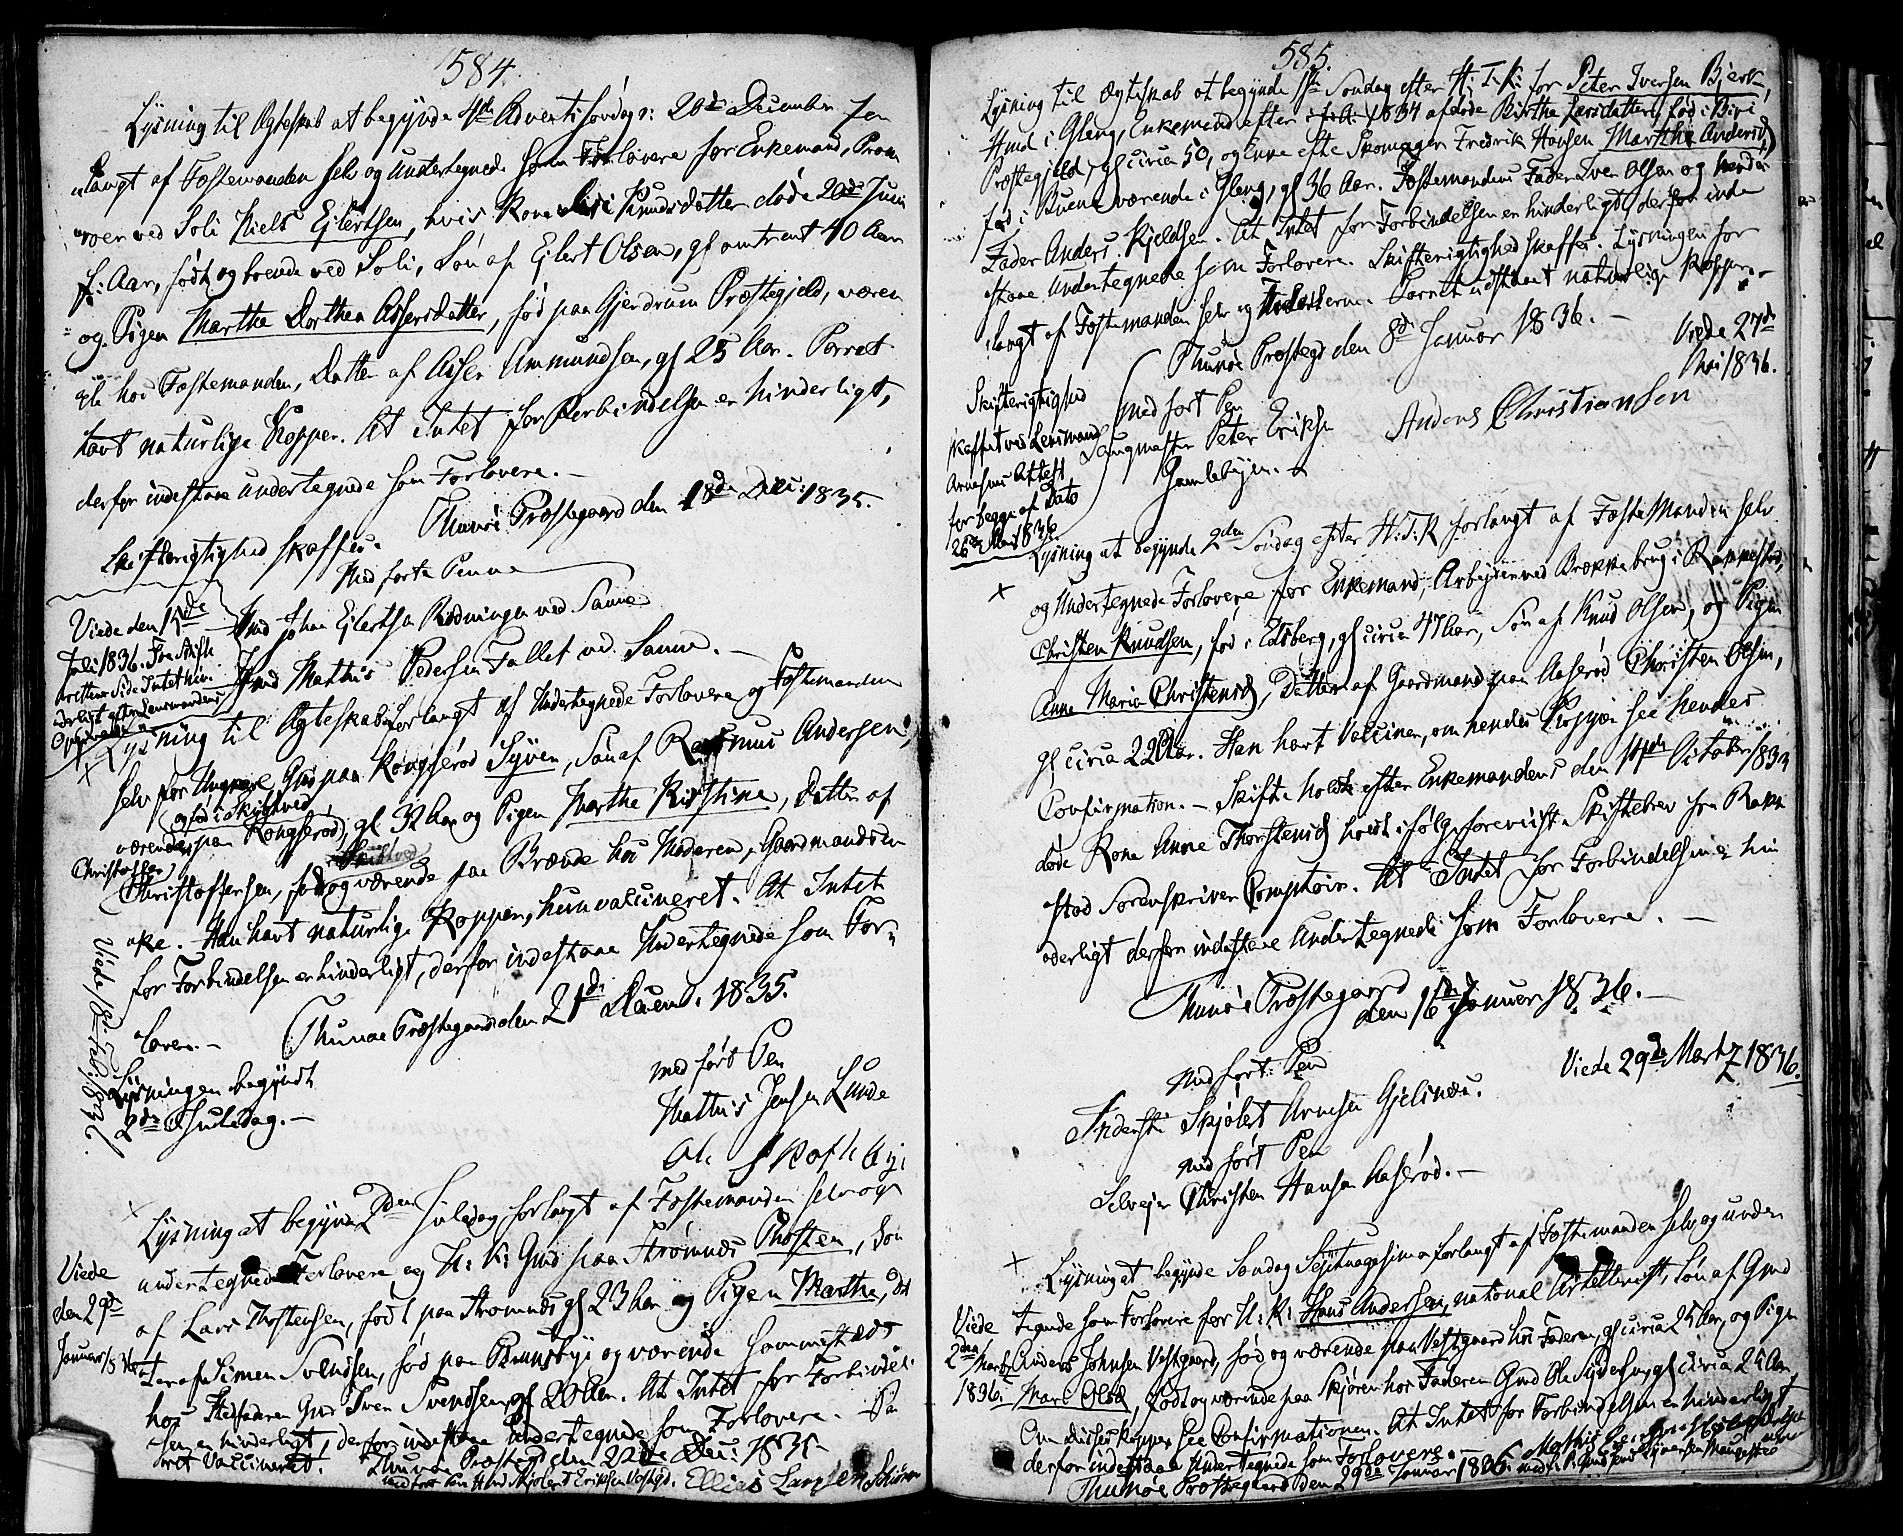 584.
Lysning til Ægteskab at begynde 4de Advents søndag: 20de December for
langt af Fæstemanden selv og undertegnede som Forlovere for Enkemand,
ved Soli Niels Ejlertsen, hvis Kone Siri Knudsdatter døde 20de Juni
f: Aar, født og boende ved Soli, Søn af Ejlert Olsen, gl omtrent 40 Aar
og Pigen Marthe Dorthea Assersdatter, fød paa Gjerdrum Præstegjeld, væren
de hos Fæstemanden, Datter af Asser Ammundsen, gl 25 Aar. Parret
havt naturlige Kopper. At Intet for Forbindelsen er hinderligt,
derfor indestaae undertegnede som Forlovere. –
Skifterigtighed skaffes. Thunøe Præstegaard den 18de Dec: 1835.
Med førte Penne
Viede den 15de
Juli 1836. Fra Skif
terettens Side Intet hin
derligt efter Lensmandens
Hmd Johan Ejlertsen Rødningen ved Sanne
Hmd Mathis Pedersen Fallet ved Sanne. –
Lysning til Ægteskab forlangt af Undertegnede Forlovere og Fæstemanden
selv for Ungkarl, Gmd paa Kongsrød Syver, Søn af Rasmus Andersen,
og fød i Skibtved
værende paa Kongsrød, gl 32 Aar og Pigen Marthe Kirstine, Datter af
Christoffer
Christoffersen, fød og værende paa Brænde hos Moderen, Gaardmands En
ke. Han havt naturlige Kopper, hun vaccineret. At Intet
for Forbindelsen er hinderligt, derfor indestaae Undertegnede som For-
lovere. – Thunøe Præstegaard den 21de Decemb: 1835.
Viede 18de Feb. 1836.
Lysningen begyndt
2den Juledag. –
med ført Pen
Mathis Jensen Lunde
Ole Skofteby
Lysning at begynde 2den Juledag, forlangt af Fæstemanden selv og
undertegnede Forlovere og U: K: Gmd paa Strømnes Thosten, Søn
Viede
den 29de
Januar 1836
af Lars Thostensen, født paa Strømnes gl 23 Aar og Pigen Marthe, Dat
ter af Simen Svendsen, fød paa Brunsbye og værende
hos Stedfaderen Gmd Sven Svendsen, gl 20 Aar. At Intet for Forbindel
sen er hinderligt, derfor indestaae undertegnede som Forlovere.
ret Vaccineret. Thunøe Præstegd den 22de Dec: 1835
med ført Pen Hmd Skjølert Eriksen Ellias Larssen
585.
Lysning til Ægteskab at begynde 1ste Søndag efter H: T: K: for Peter Iversen Bjerk,
Hmd i Gleng, Enkemand efter i 1834 afdøde Birthe Larsdatter, fød i Biri
Præstegjeld, gl circa 50, og Enke efter Skomager Fredrik Hansen Marthe Andersd,
fød i Buene værende i Gleng, gl 36 Aar. Fæstemandens Fader Iver Olsen og hendes
Fader Anders Kjeldsen. At Intet for Forbindelsen er hinderligt, derfor inde
staae undertegnede som Forlovere. Skifterigtighed skaffes. Lysningen for
langt af Fæstemanden selv og Forloverne. Parret udstaaet naturlige Kopper. –
Thunøe Præstegd den 8de Januar 1836. –
Viede 27de
Mai 1836.
Skifterigtighed
skaffet ved Lensmand
Arnesens Attest
for begge af Dato
26de Mai 1836.
med ført Pen
Laugmester Peter Eriksen
Gamlebyen. –
Anders Christiansen
Lysning at begynde 2den Søndag efter H: T: K forlangt af FæsteManden selv
og Undertegnede Forlovere for Enkemand, Arbejder ved Brække brug i Rakkestad,
Christen Knudsen, fød i Edsberg, gl circa 47 Aar, Søn af Knud Olsen, og Pigen
Anne Maria Christensd, Datter af Gaardmand paa Aaserød Christen Olsen,
gl circa 22 Aar. Han havt Vacciner, om hendes Kopper see hendes
Confirmation. – Skifte holdt efter Enkemandens den 14de October 1833
døde Kone Anne Thorstensd holdt ifølge foreviist Skiftebrev fra Rakke
stad Sorenskriver Comptoir. At Intet for Forbindelsen er hin
derligt derfor indestaae Undertegnede som Forlovere. –
Thunøe Præstegaard
den 16de Januar 1836. –
Viede 29de Martz 1836.
Med ført: Pen
Skjølert Arnesen Gjelsnæs.
med ført Pen
Selvejer Christen Hansen Aaserød. –
Lysning at begynde Søndag Septuagesima forlangt af Fæstemanden selv og under
tegnede som Forlovere for U: K: Hans Andersen, national Artellerist, Søn af Gmd
Viede
2den Martz
1836.
Anders Johnsen Vestgaard, fød og værende paa Vestgaard hos Faderen, gl circa 25 Aar, og Pigen
Mari Olsd, født og værende paa Skjøren hos Faderen Gmd Ole Syversen, gl circa 24 Aar
Om disses Kopper see Confirmationen. At Intet for Forbindelsen er hinderligt
derfor indestaae Undertegnede som Forlovere.
Thunøe Præstegaard den 29de Januar 1836